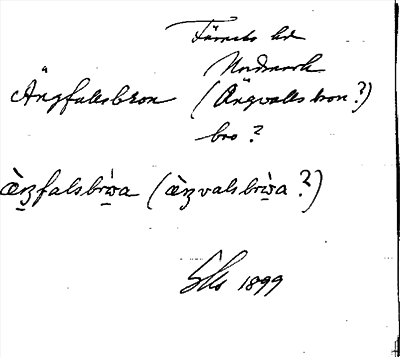 Färnebo hd
Nordmark
Ängfallsbron (Ängvallsbron?)
bro?
æ̀ŋfalsbrὼa (æ̀ŋvalsbrὼa?)
1899